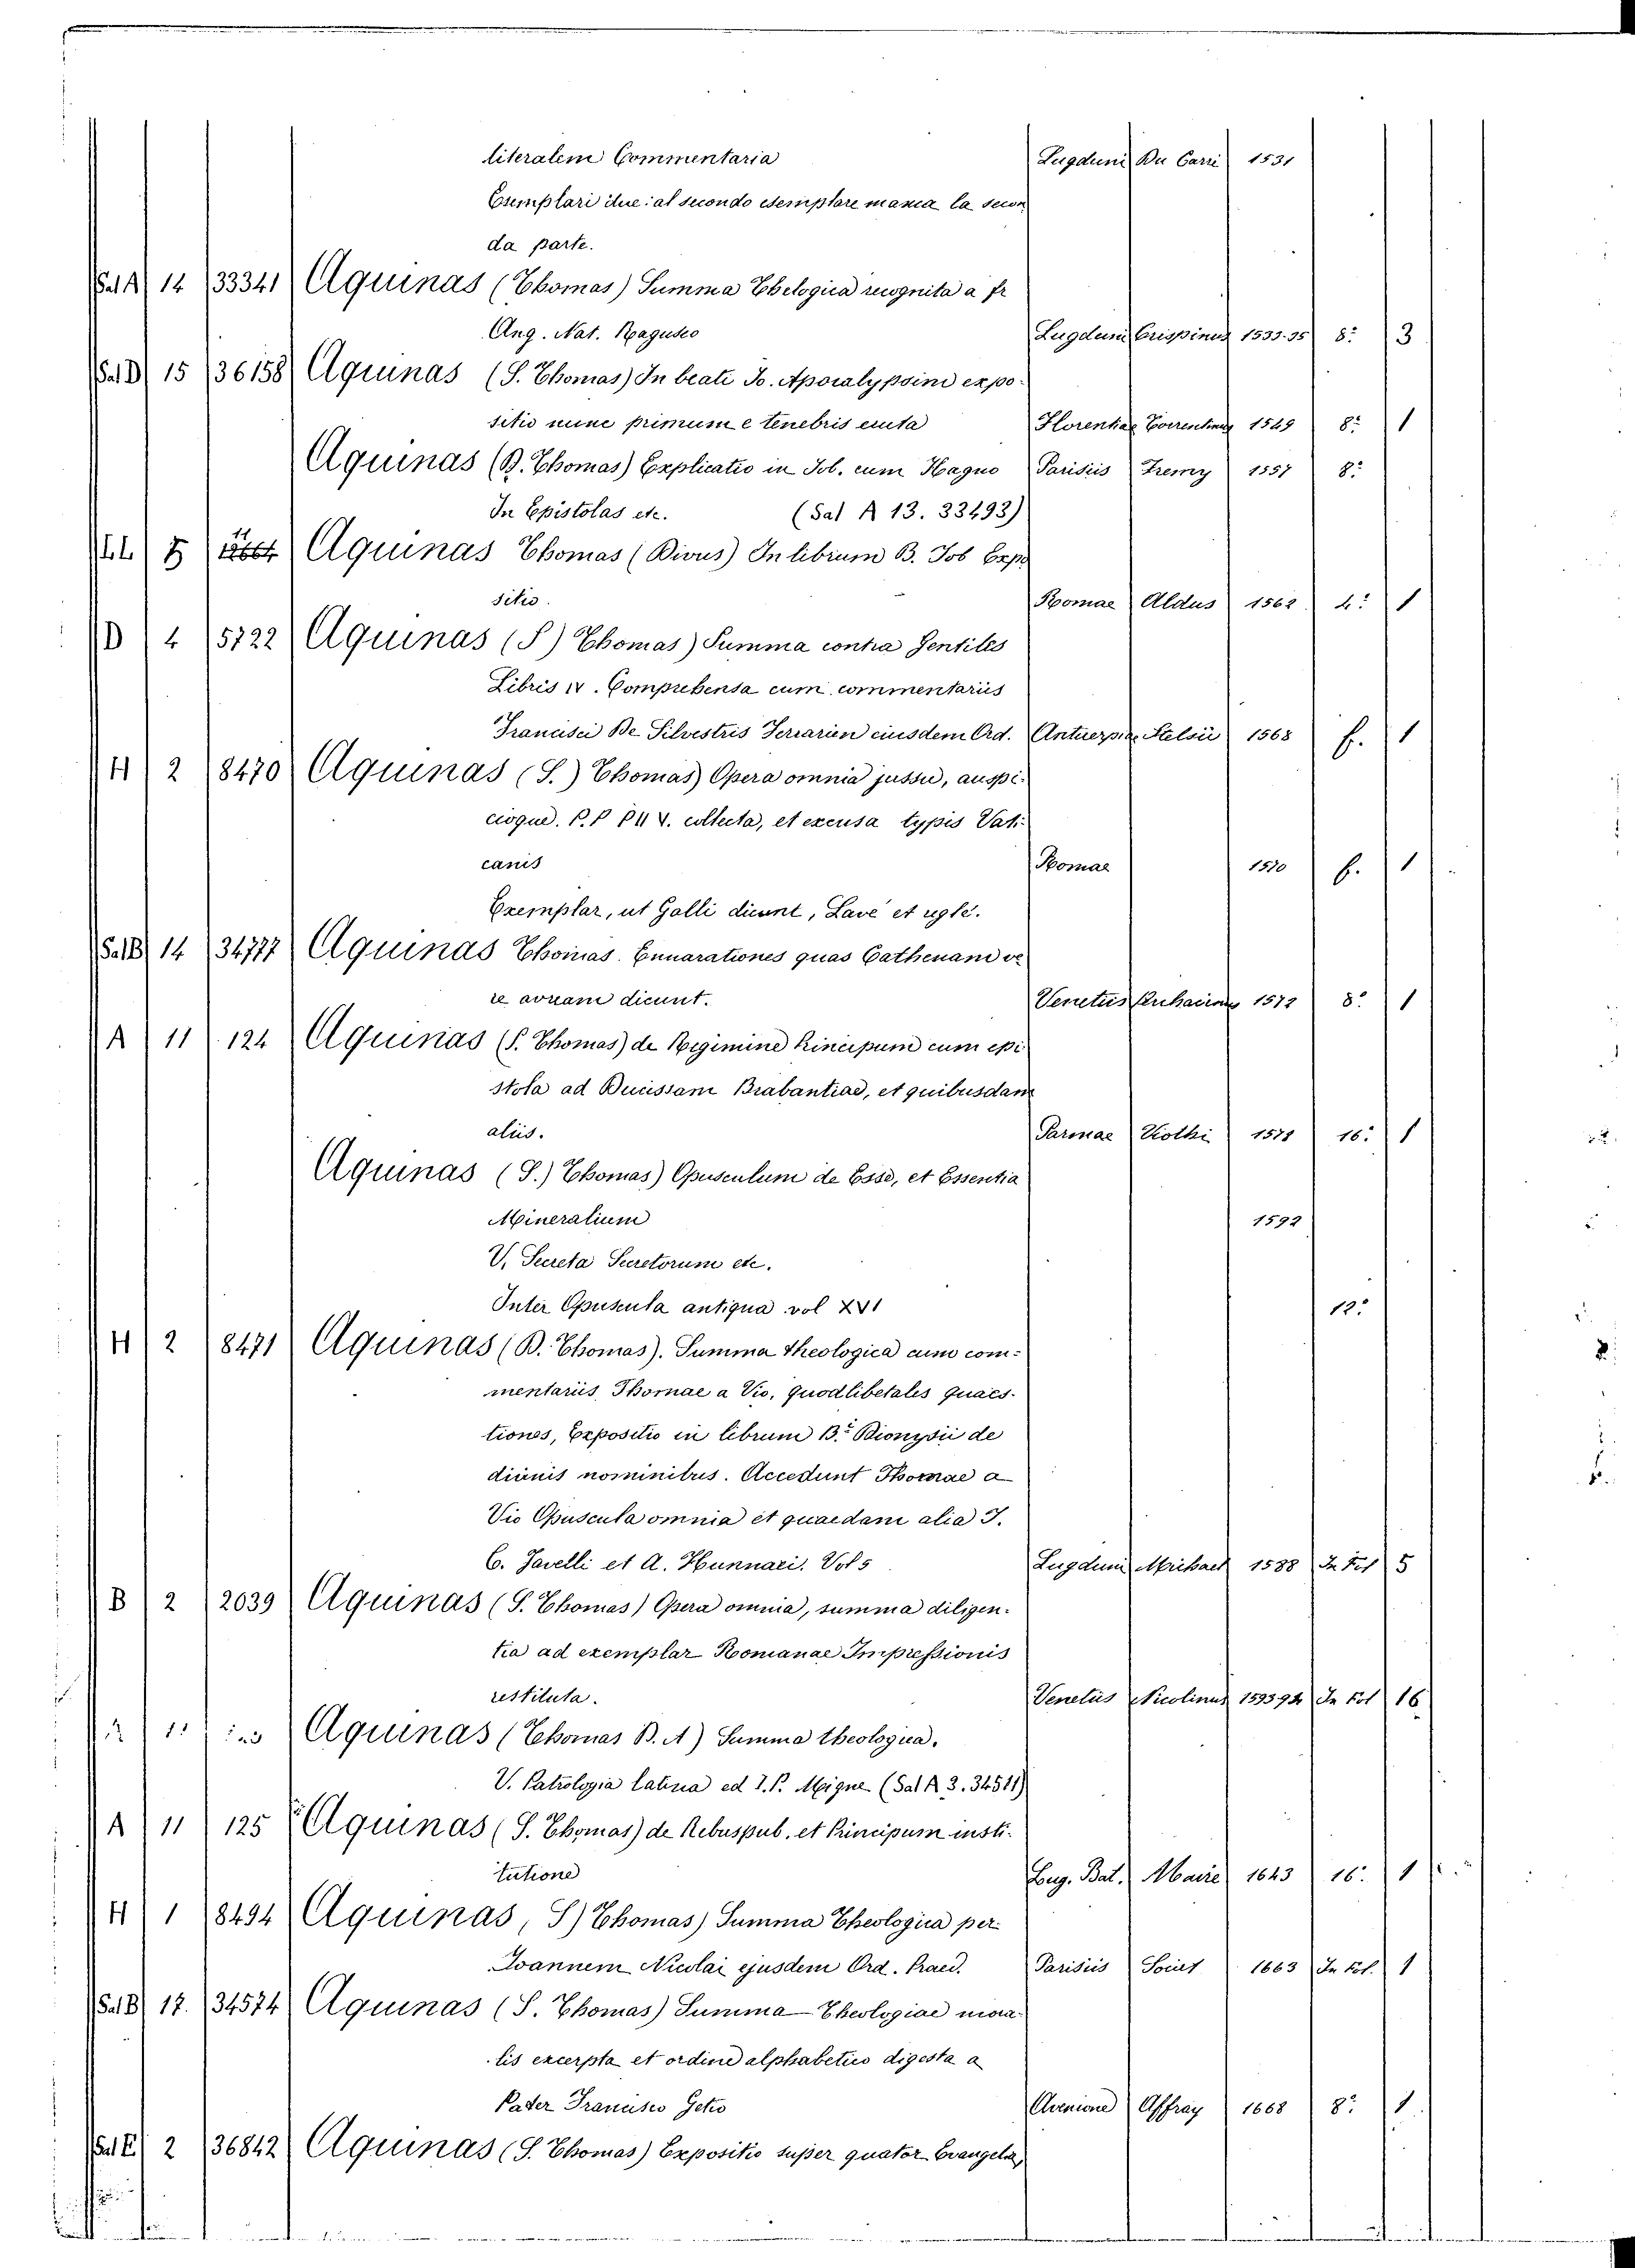 literalem Commentaria Lugduni Du Carri 1531
Esemplari due: al secondo esemplare manca la secon
da parte.
Sal A 14 33341 Aquinas (Thomas) Summa Thelogica recognita a fr
Aug. Nat. Raguseo Lugduni Crispinus 1533-35 8.º 3
Sal D 15 36158 Aquinas (S. Thomas) In beati Jo. Apocalypsim expo-
sitio nunc primum e tenebris eruta Florentiae Torrentinus 1549 8.º 1
Aquinas (B. Thomas) Explicatio in Job. cum Hagno Parisiis Fremy 1557 8.º
In Epistolas etc. (Sal A 13. 33493)
LL 11 Aquinas Thomas (Divus) In librum B. Job Expo
sitio. Romae Aldus 1562 4.º 1
D 4 5722 Aquinas (S) Thomas) Summa contra Gentiles
Libris IV. Comprehensa cum commentariis
Francisci De Silvestris Ferrarien eiusdem Ord. Antuerpiae Stelsii 1568 f. 1
H 2 8470 Aquinas (S.) Thomas) Opera omnia jussu, auspi-
cioque. P.P PII V. collecta, et excusa typis Vati-
canis Romae 1570 f. 1
Exemplar, ut Galli dicunt, Lavé et reglé.
Sal B 14 34777 Aquinas Thomas. Ennarationes quas Cathenam ve
re auream dicunt. Venetiis 1572 8.º 1
A 11 124 Aquinas (S. Thomas) de Regimine Principum cum epi
stola ad Ducissam Brabantiae, et quibusdam
aliis. Parmae Viothi 1578 16.º 1
Aquinas (S.) Thomas) Opusculum de Esse, et Essentia
Mineralium 1592
V. Secreta Secretorum etc.
Inter Opuscula antiqua vol XVI 12.º
H 2 8471 Aquinas (B. Thomas). Summa theologica cum com-
mentariis Thomae a Vio, quodlibetales quaes-
tiones, Expositio in librum B.i Dionysii de
divinis nominibus. Accedunt Thomae a
Vio Opuscula omnia et quaedam alia J.
C. Javelli et A. Hunnaei. Vol 5 Lugduni Michael 1588 In Fol 5
B 2 2039 Aquinas (S. Thomas) Opera omnia, summa diligen-
tia ad exemplar Romanae Impressionis
restituta. Venetiis Nicolinus 1593 94 In Fol 16
Aquinas (Thomas B. A) Summa theologica.
V. Patrologia latina ed J. P. Migne (Sal A 3. 34511)
A 11 125 Aquinas (S. Thomas) de Rebuspub. et Principum insti-
tutione Lug. Bat. Maire 1643 16.º 1
H 1 8494 Aquinas, S) Thomas) Summa Theologica per
Joannem Nicolai ejusdem Ord. Praed. Parisiis Soviet 1663 In Fol. 1
Sal B 17. 34574 Aquinas (S. Thomas) Summa Theologiae mora-
lis excerpta et ordine alphabetico digesta a
Pater Francisco Getio Avenione Affray 1668 8.º 1
Sal E 2 36842 Aquinas (S. Thomas) Expositio super quator Evangelia,